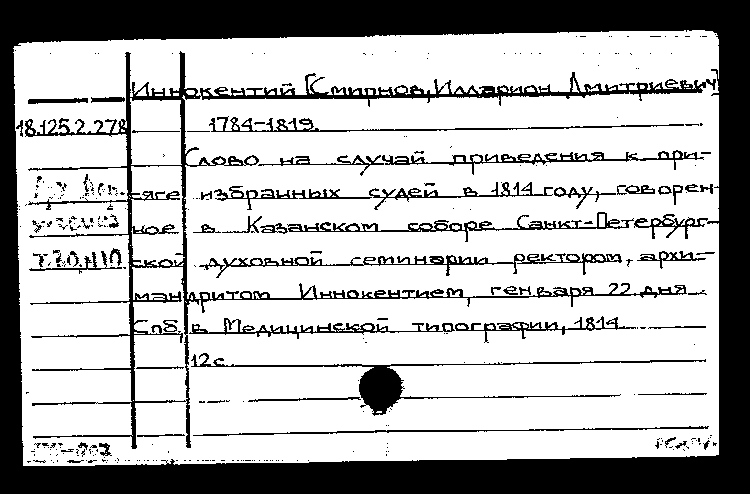 Иннокентий [Смирнов, Илларион Дмитриевич]
18.125.2.278
1784-1819.
Слово на случай приведения к при-
сяге избранных судей в 1814 году, говорен-
ное в Казанском соборе Санкт-Петербург-
ской духовной семинарии ректором, архи-
мандритом Иннокентием, генваря 22 дня.
Спб, в Медицинской типографии, 1814.
12 с.